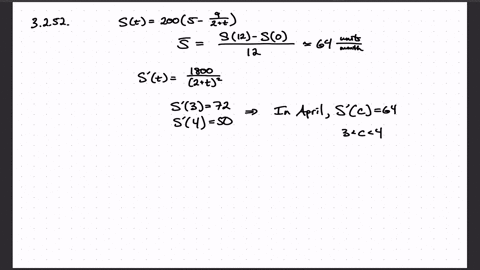 3.2.52. S(t) = 200(5 - 9/(2+t))
S̅ = (S(12) - S(0))/12 ≈ 64 units/month
S'(t) = 1800/(2+t)²
S'(3) = 72 ⇒ In April, S'(c) = 64
S'(4) = 50 3<c<4